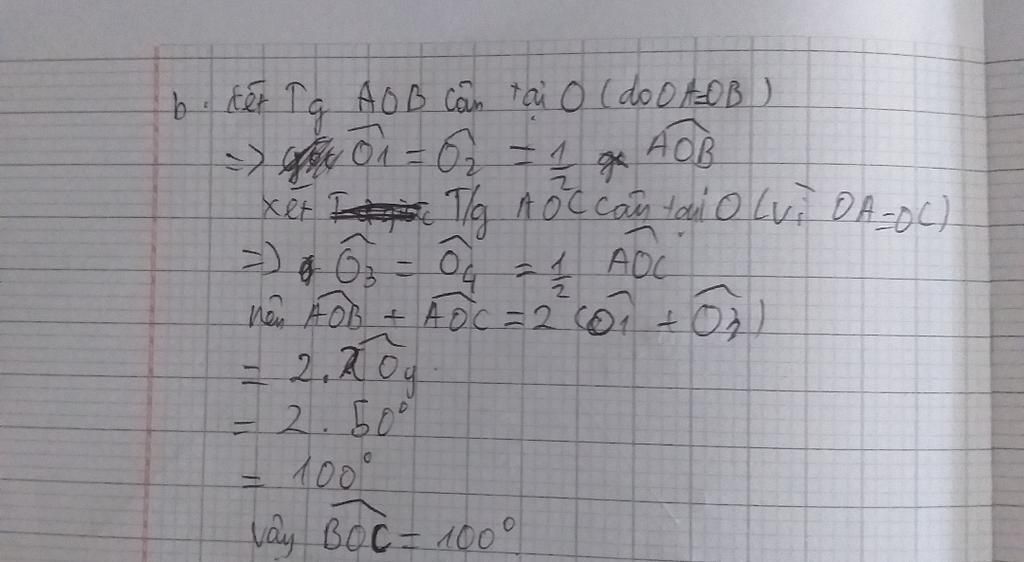 b. Xét Tg AOB cân tại O (do OA=OB)
=> Ô1 = Ô2 = 1/2 AOB
xét T/g AOC cân tại O (vì OA=OC)
=> Ô3 = Ô4 = 1/2 AOC
nên AOB + AOC = 2 (Ô1 + Ô3)
= 2. xOy
= 2. 50°
= 100°
Vậy BOC = 100°